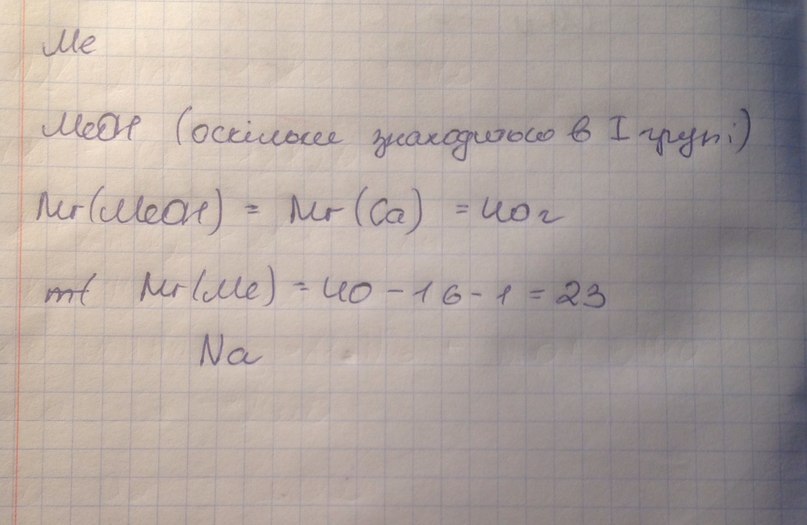 Me
MeOH (оскільки знаходиться в I групі)
Mr(MeOH) = Mr(Ca) = 40г
m( Mr(Me) = 40 - 16 - 1 = 23
Na